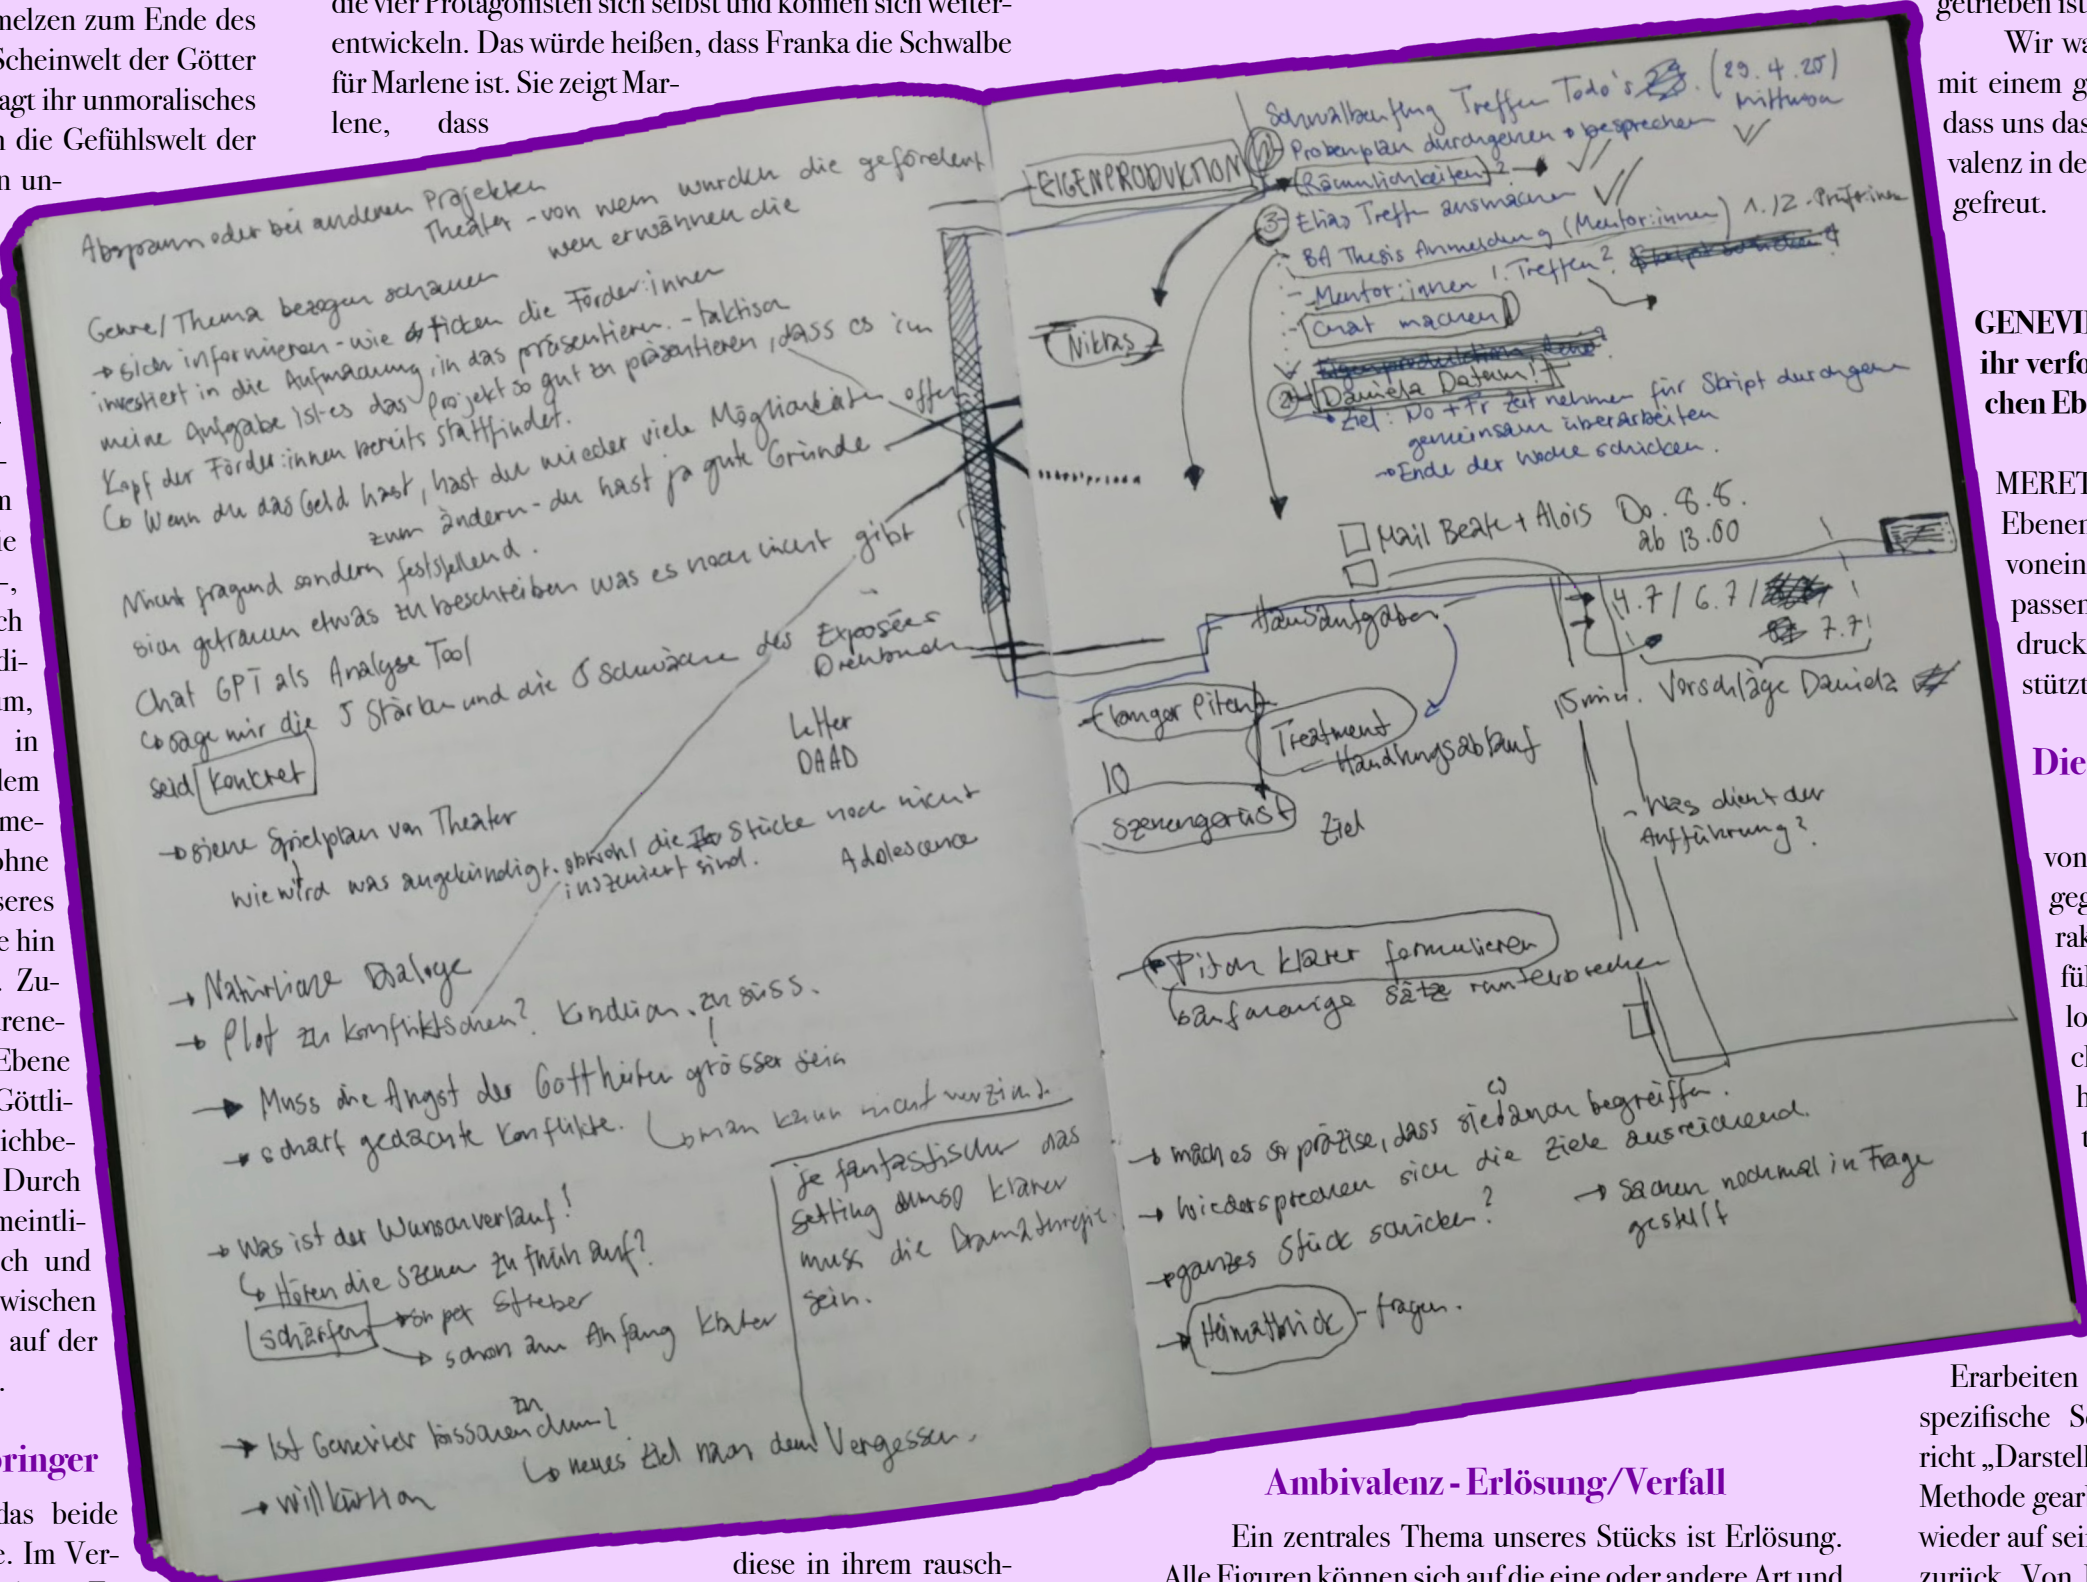 melzen zum Ende des
Scheinwelt der Götter
agt ihr unmoralisches
n die Gefühlswelt der
n un-
m
ie
-,
ch
di-
um,
in
lem
me-
ohne
seres
e hin
. Zu-
rene-
Ebene
Göttli-
ichbe-
Durch
meintli-
ch und
wischen
auf der
.
ringer
das beide
e. Im Ver-
die vier Protagonisten sich selbst und können sich weiter-
entwickeln. Das würde heißen, dass Franka die Schwalbe
für Marlene ist. Sie zeigt Mar-
lene, dass
Absprann oder bei anderen Projekten
Theater - von wem wurden die gefördert
wen erwähnen die
Genre/Thema bezogen schauen
→ sich informieren - wie ticken die Förder:innen
investiert in die Aufmachung, in das präsentieren. - taktisch
meine Aufgabe ist es das Projekt so gut zu präsentieren, dass es im
Kopf der Förder:innen bereits stattfindet.
↳ Wenn du das Geld hast, hast du wieder viele Möglichkeiten offen
zum ändern - du hast ja gute Gründe
Nicht fragend sondern feststellend.
sich getrauen etwas zu beschreiben was es noch nicht gibt
Chat GPT als Analyse Tool
↳ sage mir die 5 Stärken und die 5 Schwäche des Exposées
Drehbuch
seid konkret
Letter
DAAD
→ siehe Spielplan von Theater
wie wird was angekündigt. obwohl die Stücke noch nicht
inszeniert sind.
Adolescence
→ Natürliche Dialoge
→ Plot zu konfliktscheu? Kindlich. zu süss.
!
→ Muss die Angst der Gottheiten grösser sein
→ scharf gedachte Konflikte. ↳ man kann nicht
→ Was ist der Wunschverlauf!
↳ Hören die Szenen zu früh auf?
schärfen → Streber
→ schon am Anfang klarer
je fantastischer das
setting umso klarer
muss die Dramaturgie
sein.
→ Ist Genevier bisschen zu dumm?
↳ neues Ziel nach dem Vergessen.
→ willkürlich
EIGENPRODUKTION
Schwalbenflug Treffen Todo's (29.4.25)
Mittwoch
1 Probenplan durchgehen + besprechen ✓
Räumlichkeiten? → ✓
3 Elias Treffen ausmachen ✓
BA Thesis Anmeldung (Mentor:innen) 1./2. Prüfer:innen
- Mentor:innen 1. Treffen?
- Chat machen
✓ Eigenproduktion
2 Daniela Datum!
→ Ziel: Do + Fr Zeit nehmen für Skript durchgehen
gemeinsam überarbeiten
→ Ende der Woche schicken.
Niklas
□ Mail Beate + Alois Do. 8.5.
ab 13.00
□
Hausaufgaben
4.7 / 6.7 /
7.7
15 min. Vorschläge Daniela
langer Pitch
Treatment
Handlungsablauf
10
Szenengerüst
Ziel
- Was dient der
Aufführung?
→ Pitch klarer formulieren
↳ aufwendige Sätze runterbrechen
→ mach es so präzise, dass sie es danach begreiffen.
→ Wiedersprechen sich die Ziele ausreichend.
→ ganzes Stück schicken?
→ Sachen nochmal in Frage
gestellt
→ Heimatblick - fragen.
diese in ihrem rausch-
Ambivalenz - Erlösung/Verfall
Ein zentrales Thema unseres Stücks ist Erlösung.
Alle Figuren können sich auf die eine oder andere Art und
getrieben ist
Wir wa
mit einem g
dass uns das
valenz in de
gefreut.
GENEVI
ihr verfo
chen Eb
MERET
Ebenen
vonein
passen
druck
stützt
Die
von
geg
rak
fül
lo
cl
h
t
Erarbeiten
spezifische S
richt „Darstell
Methode gear
wieder auf sei
zurück. Von